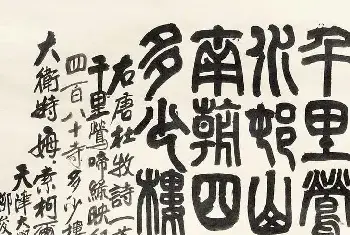 千里鶯
水邨山
南朝四
多少樓
右唐杜牧詩一
千里鶯啼綠映
四百八十寺多少樓
大衛特姆索柯爾
天津大